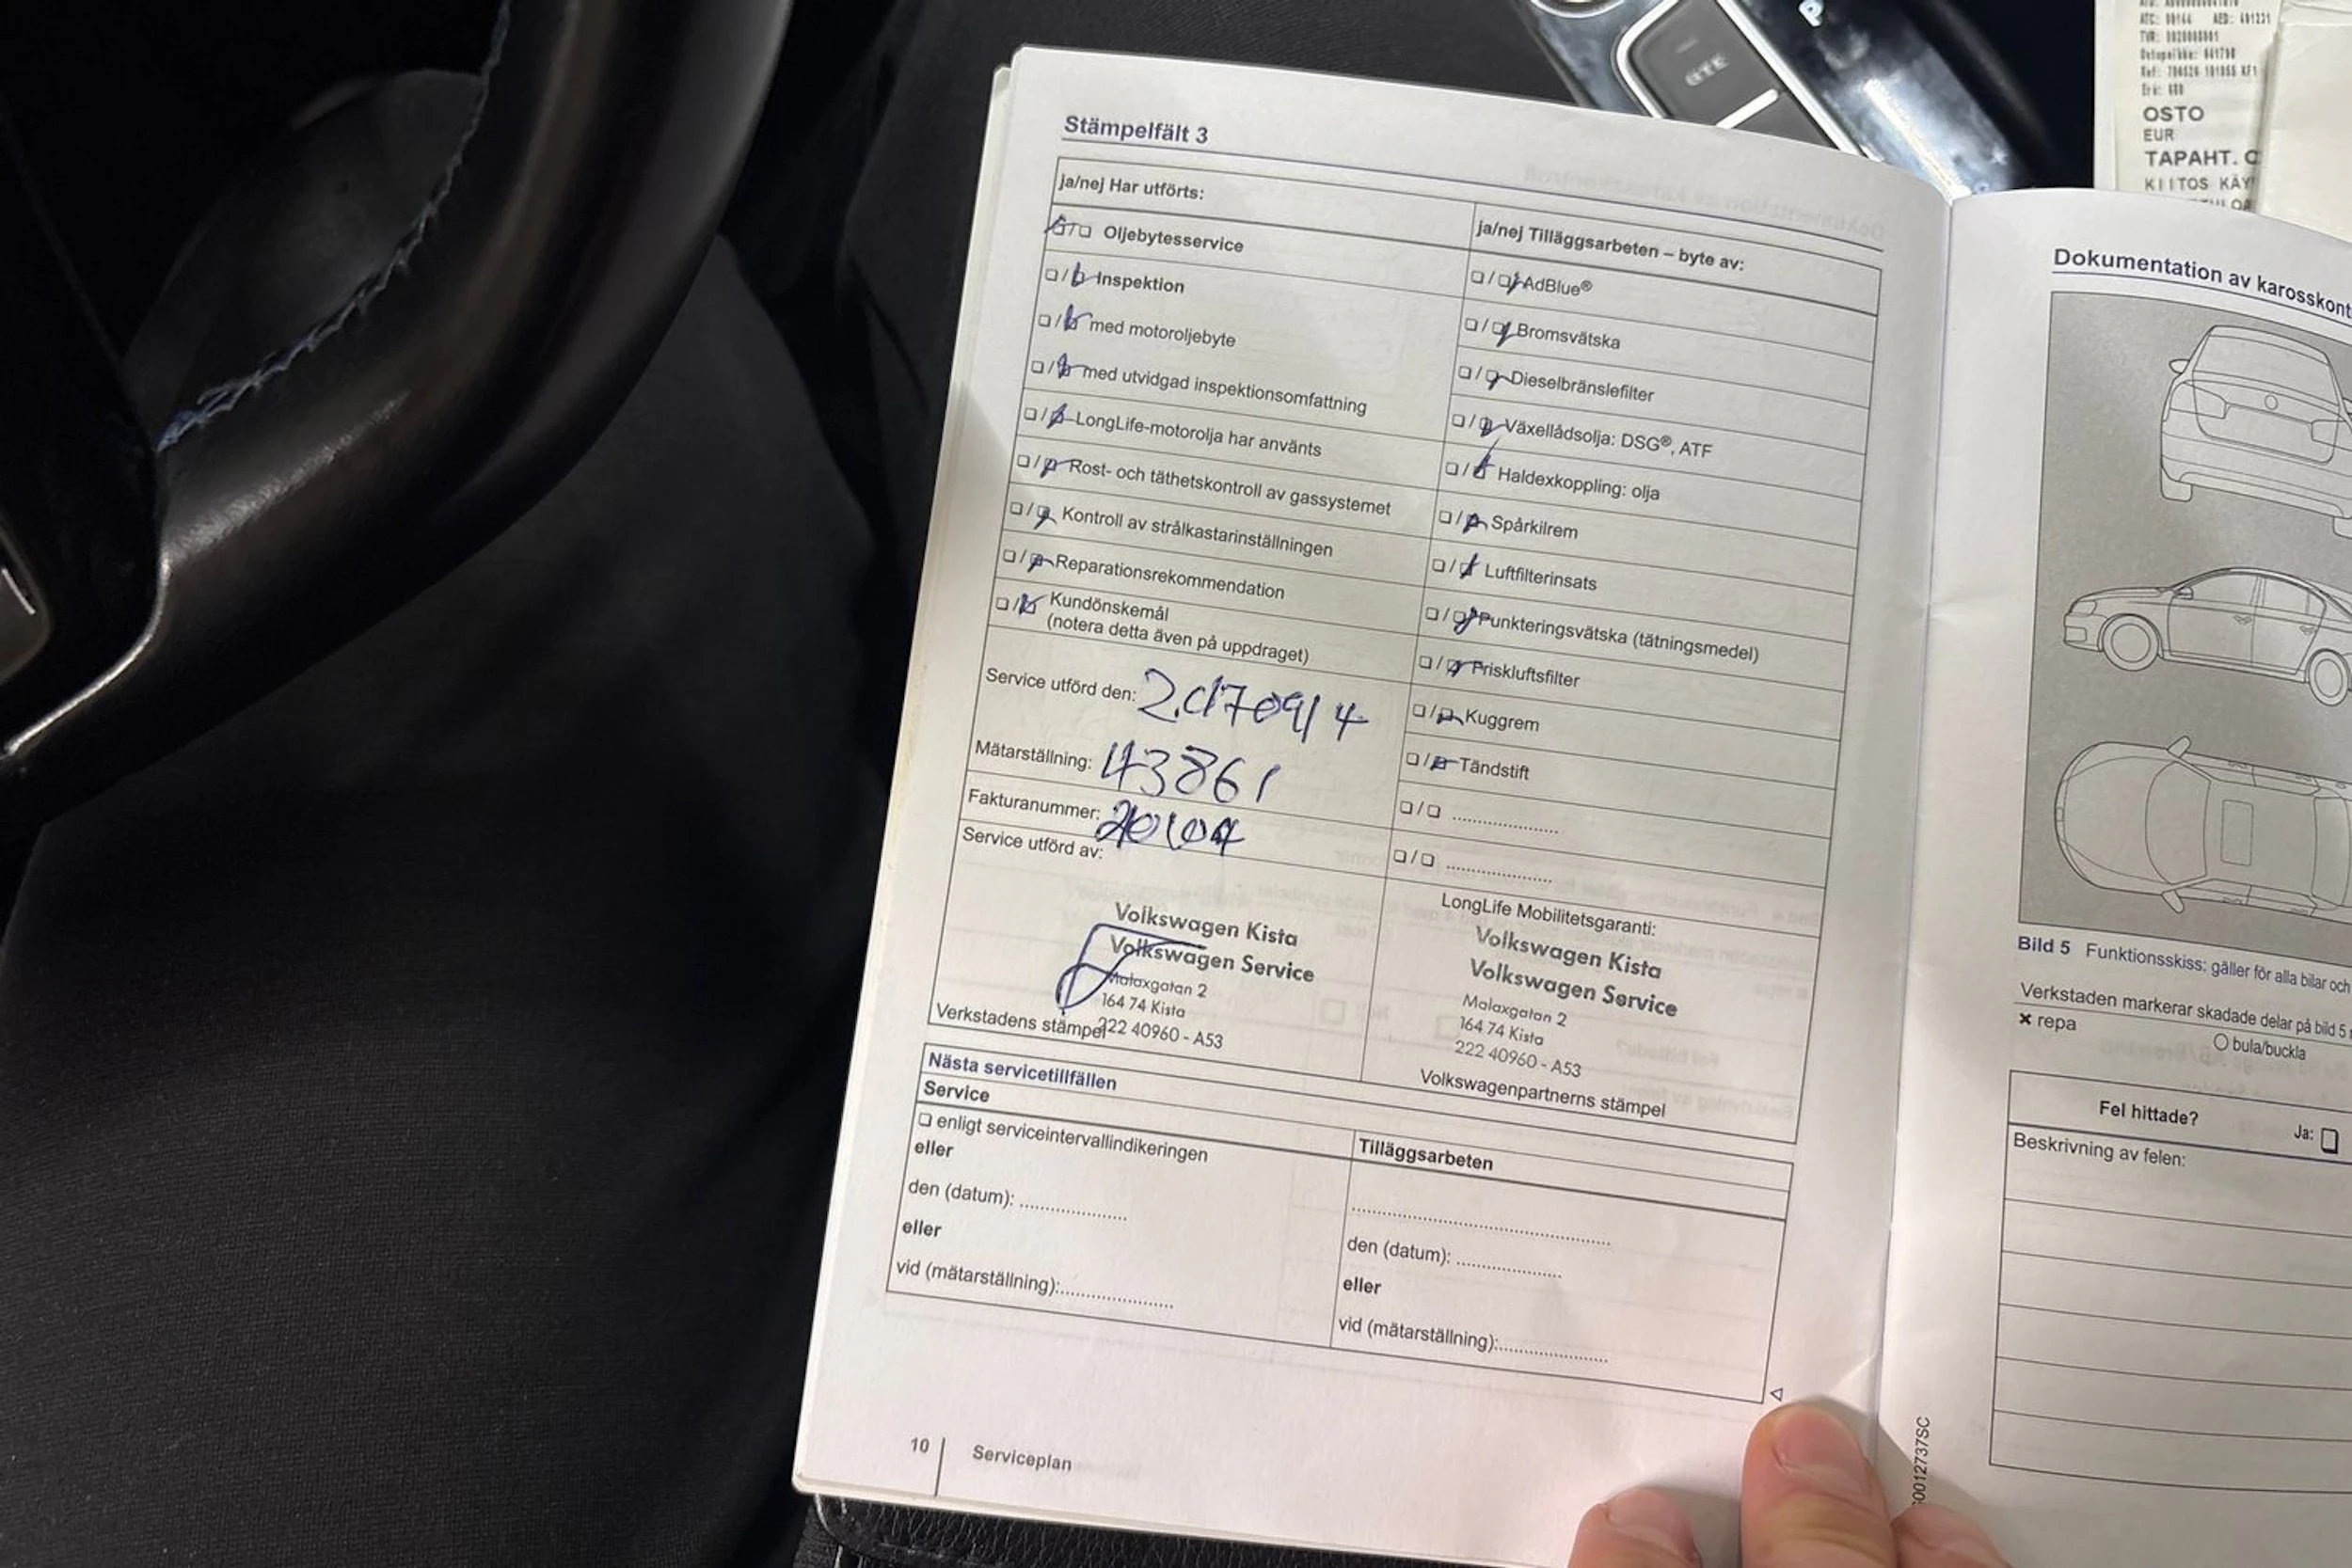 GTE
P
ATC: 00144 AED: 491231
TVR: 0020008001
OSTO
EUR
TAPAHT.
KIITOS KÄY
Stämpelfält 3
ja/nej Har utförts:
❏/❏ Oljebytesservice
❏/❏ Inspektion
❏/❏ med motoroljebyte
❏/❏ med utvidgad inspektionsomfattning
❏/❏ LongLife-motorolja har använts
❏/❏ Rost- och täthetskontroll av gassystemet
❏/❏ Kontroll av strålkastarinställningen
❏/❏ Reparationsrekommendation
❏/❏ Kundönskemål
(notera detta även på uppdraget)
Service utförd den: 20170914
Mätarställning: 43861
Fakturanummer:
Service utförd av:
Volkswagen Kista
Volkswagen Service
Malaxgatan 2
164 74 Kista
222 40960 - A53
Verkstadens stämpel
ja/nej Tilläggsarbeten – byte av:
❏/❏ AdBlue®
❏/❏ Bromsvätska
❏/❏ Dieselbränslefilter
❏/❏ Växellådsolja: DSG®, ATF
❏/❏ Haldexkoppling: olja
❏/❏ Spårkilrem
❏/❏ Luftfilterinsats
❏/❏ Punkteringsvätska (tätningsmedel)
❏/❏ Friskluftsfilter
❏/❏ Kuggrem
❏/❏ Tändstift
❏/❏ ......................
❏/❏ ......................
LongLife Mobilitetsgaranti:
Volkswagen Kista
Volkswagen Service
Malaxgatan 2
164 74 Kista
222 40960 - A53
Volkswagenpartnerns stämpel
Nästa servicetillfällen
Service
❏ enligt serviceintervallindikeringen
eller
den (datum): ......................
eller
vid (mätarställning):......................
Tilläggsarbeten
......................................................
den (datum): ......................
eller
vid (mätarställning):......................
10 Serviceplan
Dokumentation av karosskont
Bild 5 Funktionsskiss: gäller för alla bilar och
Verkstaden markerar skadade delar på bild 5
× repa
○ bula/buckla
Fel hittade?
Ja: ❏
Beskrivning av felen:
60012737SC